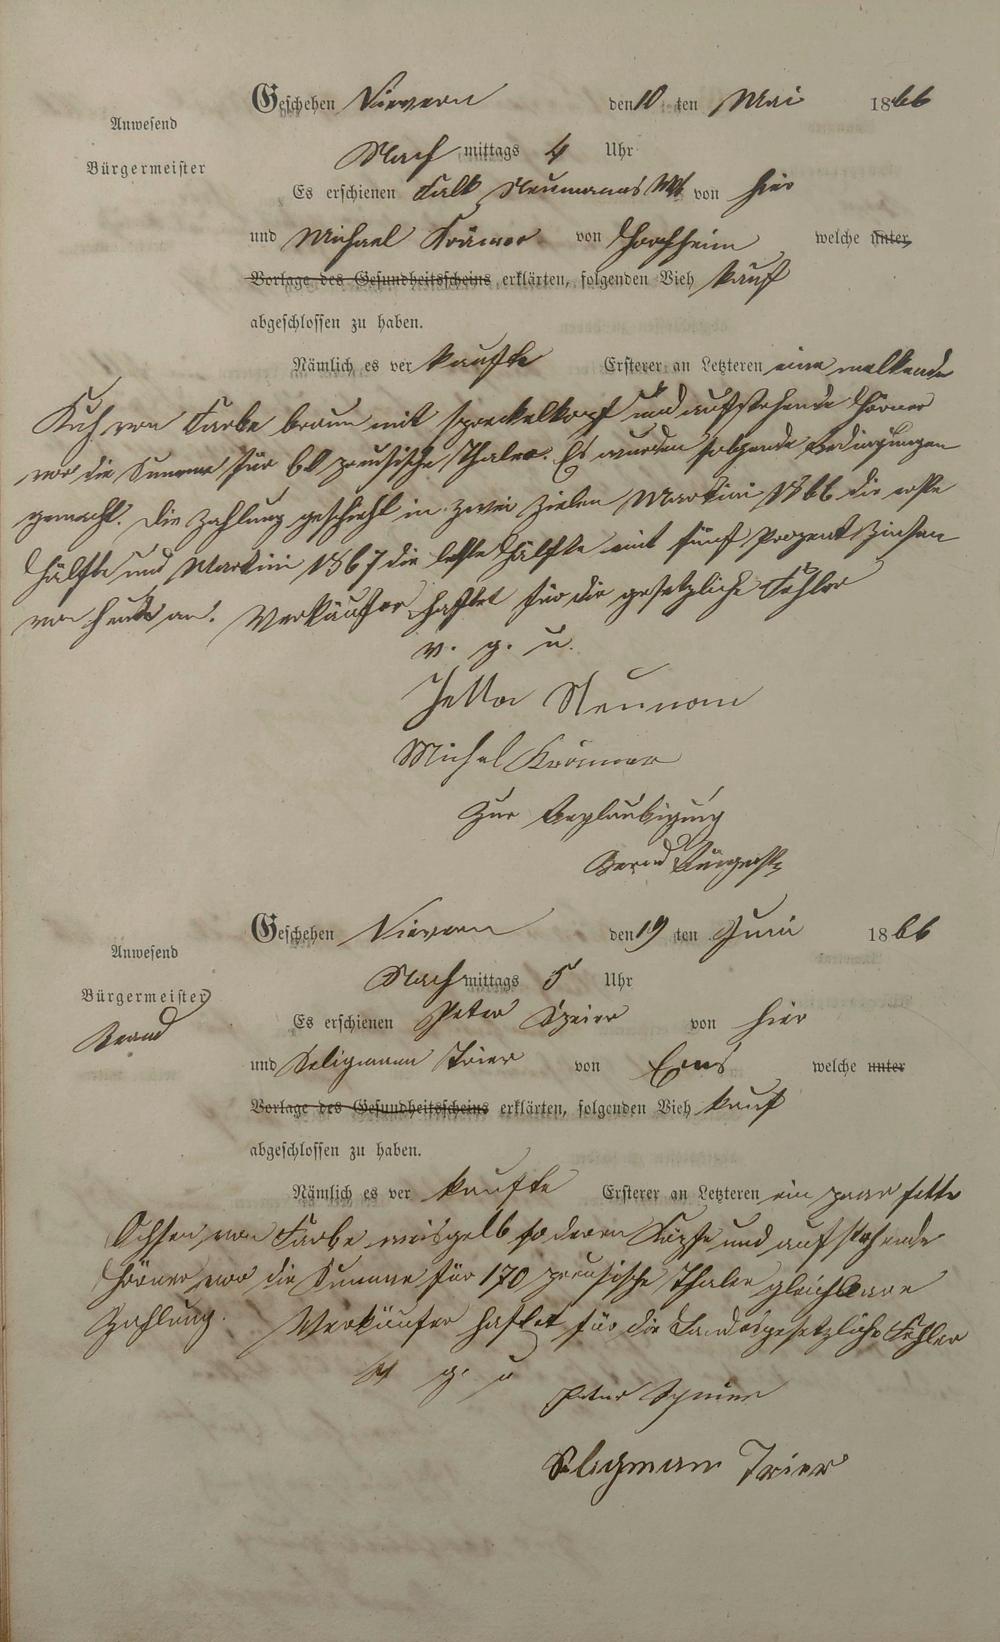 Geschehen Nievern den 10 ten Mai 1866
Anwesend
Nach mittags 4 Uhr
Bürgermeister
Es erschienen Falk Neumanns Wb von hier
und Michael Krämer von Horchheim welche unter
Vorlage des Gesundheitsscheins erklärten, folgenden Vieh kauf
abgeschlossen zu haben.
Nämlich es ver kaufte Ersterer an Letzteren eine melkende
Kuh von Farbe braun mit spreckelkopf und aufstehende Hörner
vor die Summe für 60 preusische Thaler. Es wurden folgende Bedingungen
gemacht. Die Zahlung geschieht in zwei Zielen Martini 1866 die erste
Hälfte und Martini 1867 die letzte Hälfte mit fünf Prozent Zinsen
von heute an. Verkäufer haftet für die gesetzliche Fehler
v. g. u.
Jetta Neumann
Michel Krämer
Zur Beglaubigung
Brand Bürgermstr
Geschehen Nievern den 19 ten Juni 1866
Anwesend
Nach mittags 5 Uhr
Bürgermeister
Brand
Es erschienen Peter Speier von hier
und Seligmann Trier von Ems welche unter
Vorlage des Gesundheitsscheins erklärten, folgenden Vieh kauf
abgeschlossen zu haben.
Nämlich es ver kaufte Ersterer an Letzteren ein paar fette
Ochsen von Farbe weisgelb Köpfe und aufstehende
Hörner vor die Summe für 170 preusische Thaler gleichbare
Zahlung. Verkäufer haftet für die Landesgesetzliche Fehler
V g. u
Peter Speier
Seligmann Trier